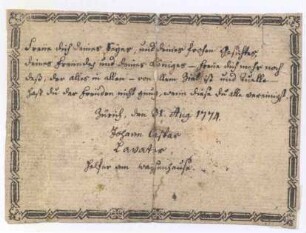 Freue dich deines Sieges, und deines frohen Gesichtes,
deines Freundes und deines Königes – freue dich mehr noch
daß, der alles in allen – von allem Gut ist und Quelle
hast du der Freuden nicht gnug, wenn diese du alle vereinigst
Zürich, den 31. Aug 1774.
Johann Caspar
Lavater
Helfer am Waysenhause.